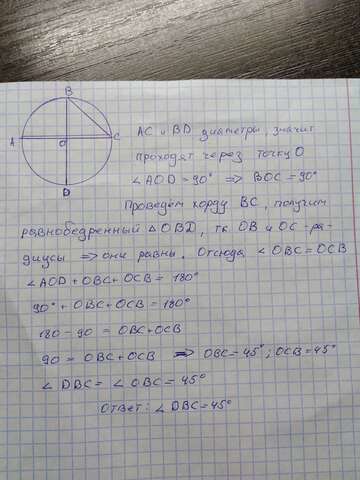 B
A
O
C
D
AC и BD диаметры, значит
проходят через точку O
∠AOD = 90° => BOC = 90°
Проведём хорду BC, получим
равнобедренный △OBD, тк OB и OC - ра-
диусы => они равны. Отсюда ∠OBC = OCB
∠AOD + OBC + OCB = 180°
90° + OBC + OCB = 180°
180 - 90 = OBC + OCB
90 = OBC + OCB => OBC = 45°; OCB = 45°
∠DBC = ∠OBC = 45°
Ответ: ∠DBC = 45°